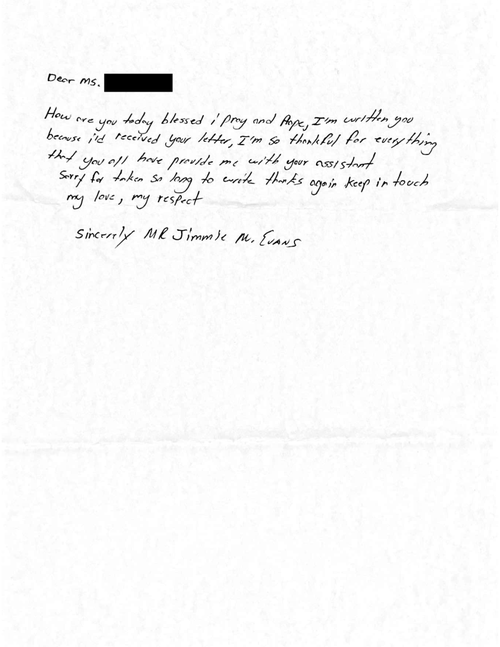 Dear Ms.
How are you today blessed i pray and Hope, I'm written you
because i'd received your letter, I'm so thankful for everything
that you all have provide me with your assistant
Sorry for taken so long to write thanks again keep in touch
my love, my respect
Sincerely MR Jimmie M. Evans